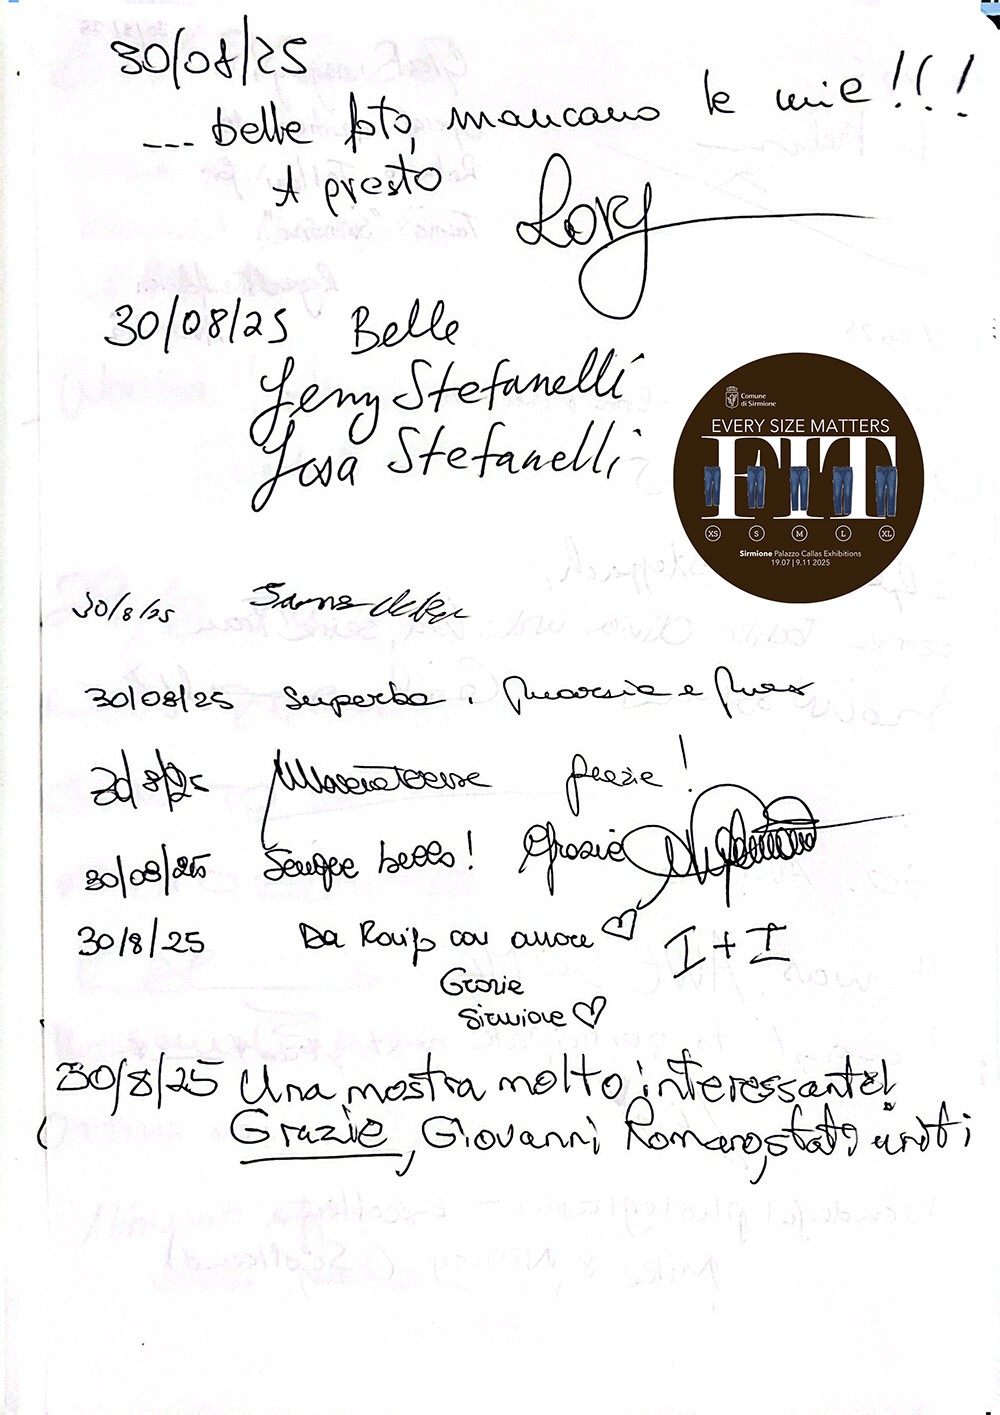 30/08/25
... belle foto, mancano le mie!!!
A presto
Lory
30/08/25 Belle
Jeny Stefanelli
Josa Stefanelli
Comune
di Sirmione
EVERY SIZE MATTERS
FIT
XS S M L XL
Sirmione Palazzo Callas Exhibitions
19.07 | 9.11 2025
30/8/25
30/08/25 Superba. e
30/8/25 grazie!
30/08/25 Sempre bello! Grazie
30/8/25 Da con amore ♡ I + I
Grazie
Sirmione ♡
30/8/25 Una mostra molto interessante!
Grazie, Giovanni Romano, stati uniti